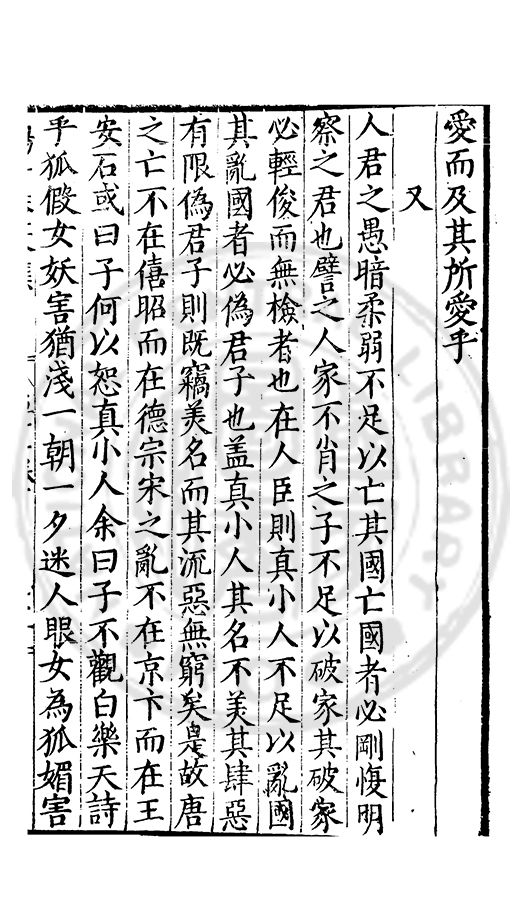 愛而及其所愛乎
又
人君之愚暗柔弱不足以亡其國亡國者必剛愎明
察之君也譬之人家不肖之子不足以破家其破家
必輕俊而無檢者也在人臣則真小人不足以亂國
其亂國者必偽君子也盖真小人其名不美其肆惡
有限偽君子則既竊美名而其流惡無窮矣是故唐
之亡不在僖昭而在德宗宋之亂不在京卞而在王
安石或曰子何以恕真小人余曰子不觀白樂天詩
乎狐假女妖害猶淺一朝一夕迷人眼女為狐媚害
LIBRARY